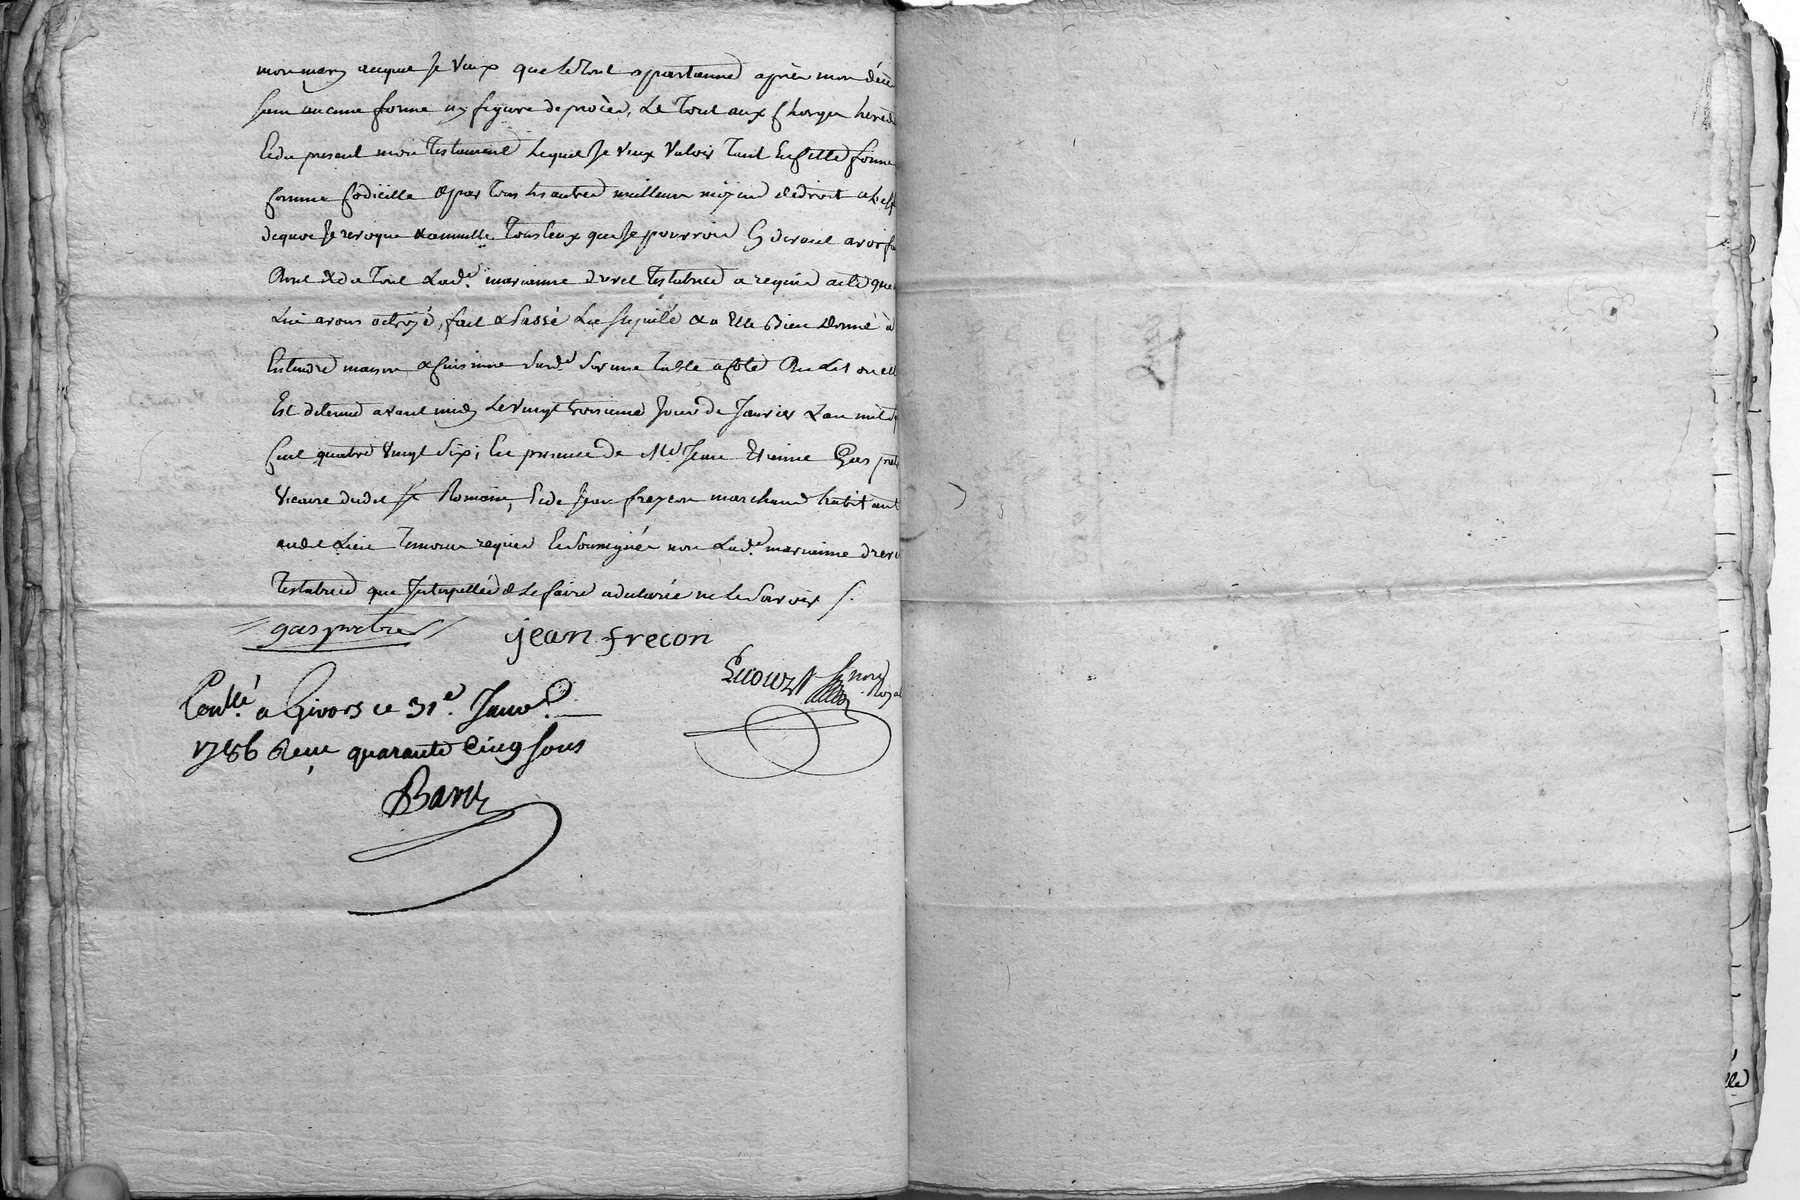 mon mary auquel Je veux que le tout appartienne après mon décè
sans aucune forme ny figure de procès, Le Tout aux Charges heredi
Et du present mon Testament Lequel Je veux Valoir Tant En cette forme
comme Codicille & par tous les autres meilleurs moyen de droit a L'eff
de quoi Je revoque & annulle Tous Ceux que Je pourrois Cy devant avoir fa
Dont & du Tout Lade. marianne drevet Testatrice a requis acte que
Lui avons octroyé, fait & Passé Lu & a Elle Bien donné à
Entendre maison & Cuisine Sur une table a Coté Du Lit ou elle
Est detenue avant midy Le Vingt troisieme Jour de Janvier L'an mil
Cent quatre Vingt Six; En presence de Me Jean Etienne Gas pretre
Vicaire dudit St Romain, & de Jean freçon marchand habitant
audit Lieu Temoins requis Et Soussignés non Lade. marianne dreve
Testatrice que Interpellée de Le faire a declarée ne Le Savoir /.
gas pretre jean frecon
not Royal
Conllé. a Givors ce 31e. Janvr.
1786 Reçu quarante Cinq sous